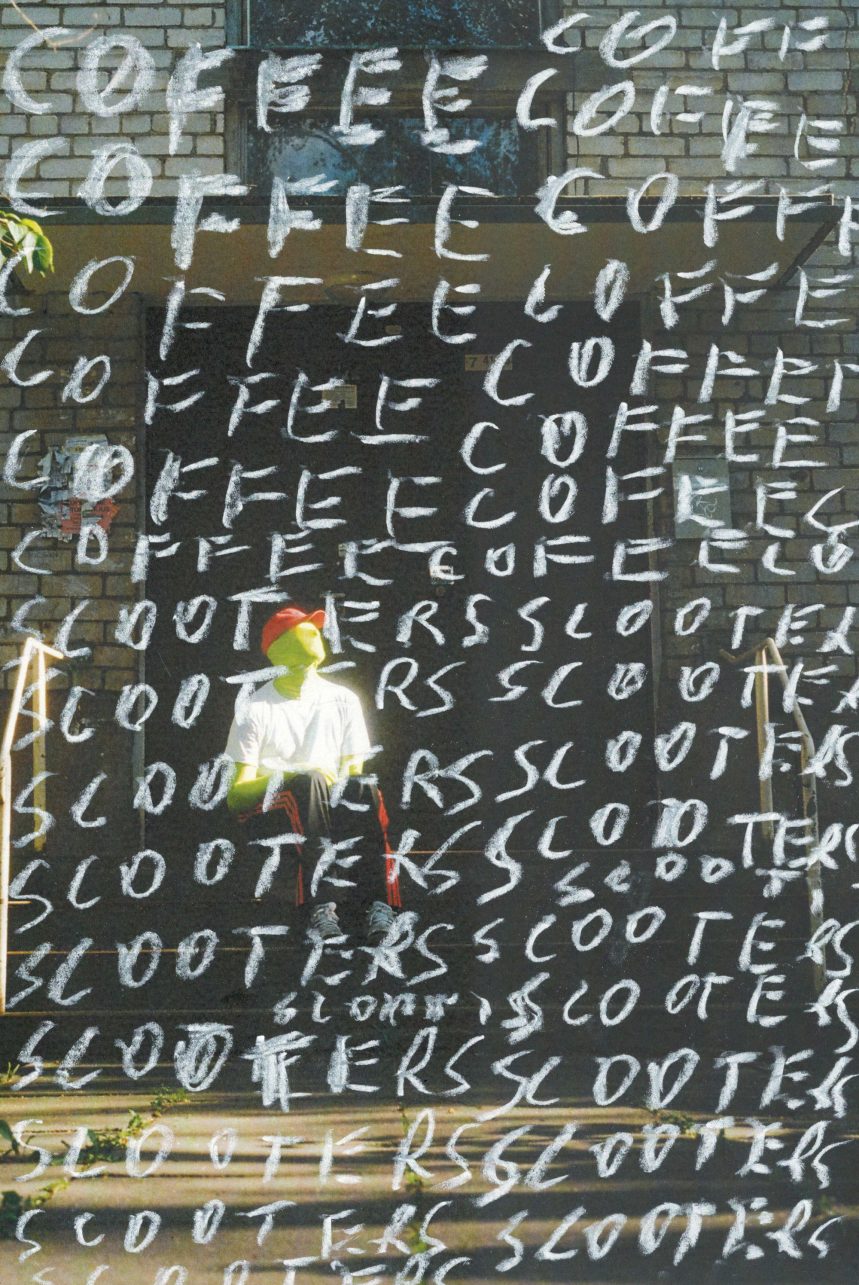 COFF
COFFEE COFFE
COFFEE COFFF
COFFEE COFFE
COFFEE COFFEF
COFFEE
COFFEE COFEEC
COFFEE COFEECO
SCOOTERS SCOOTER
SCOOTERS SCOOTER
SCOOTERS SCOOTERS
SCOOTERS SCOOTERS
SCOOT
SCOOTERS SCOOTERS
SCOOTERS
SCOOTERS SCOOTERS
SCOOTERS SCOOTERS
SCOOTERS SCOOTERS
SCOOTERS